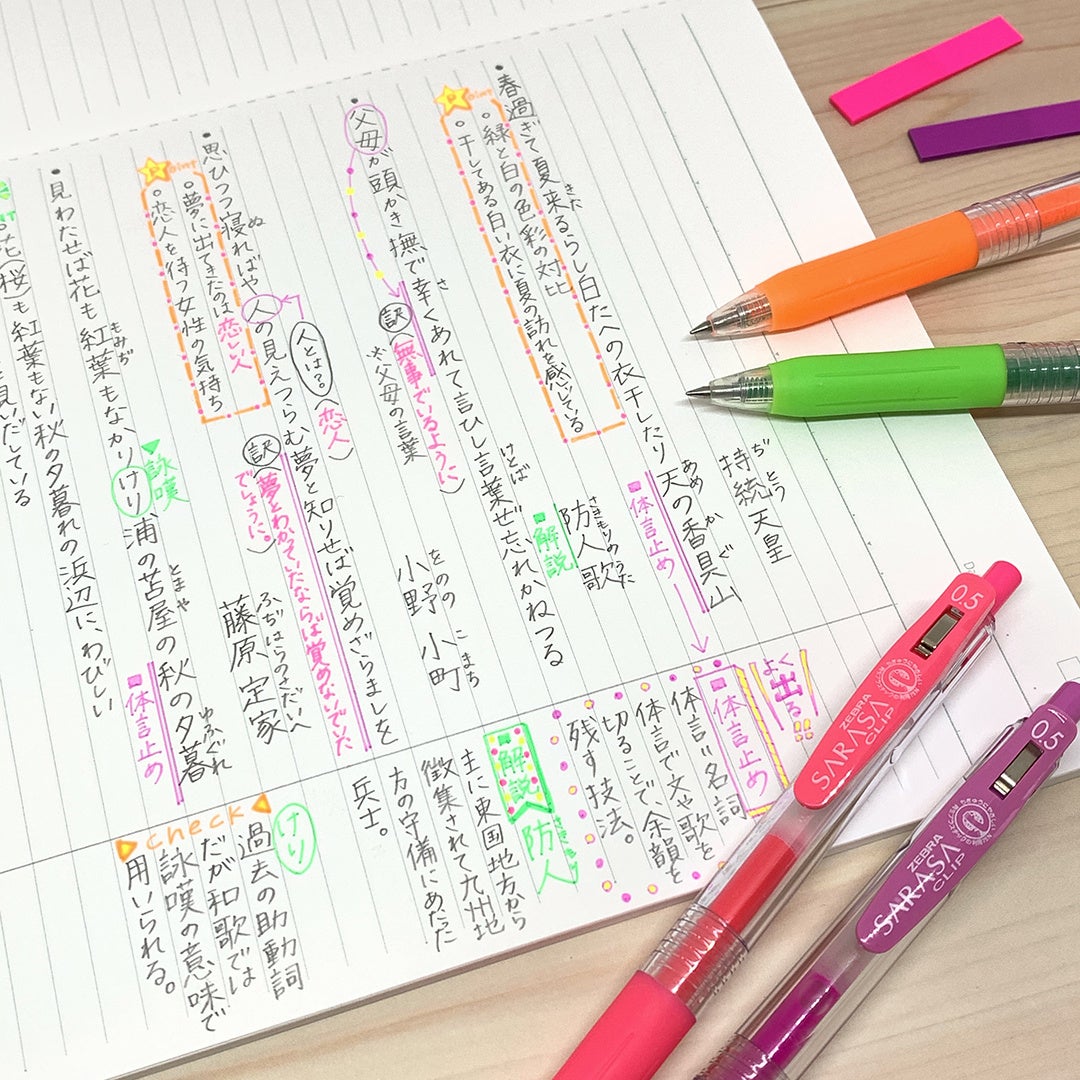 春過ぎて夏来るらし白たへの衣干したり天の香具山
きた
あめ
かぐ
Point
○緑と白の色彩の対比
○干してある白い衣に夏の訪れを感じている
体言止め
持統天皇
ぢとう
父母が頭かき撫で幸くあれて言ひし言葉ぜ忘れかねつる
さ
けとば
訳(無事でいるように)
※父母の言葉
解説
防人歌
さきもりのうた
思ひつつ寝ればや人の見えつらむ夢と知りせば覚めざらましを
ぬ
人とは?(恋人)
Point
○夢に出てきたのは恋しい人
○恋人を待つ女性の気持ち
訳(夢とわかっていたならば覚めないでいた
でしょうに。)
小野小町
をののこまち
見わたせば花も紅葉もなかりけり浦の苫屋の秋の夕暮
もみぢ
とまや
ゆふぐれ
詠嘆
体言止め
藤原定家
ふぢはらのさだいへ
花(桜)も紅葉もない秋の夕暮れの浜辺に、わびしい
見いだしている
よく出る!!
体言止め
体言=名詞
体言で文や歌を
切ることで、余韻を
残す技法。
解説 防人
さきもり
主に東国地方から
徴集されて九州地
方の守備にあたった
兵士。
check
けり
過去の助動詞
だが和歌では
詠嘆の意味で
用いられる。
0.5
ZEBRA
SARASA
CLIP
0.5
ZEBRA
SARASA
CLIP